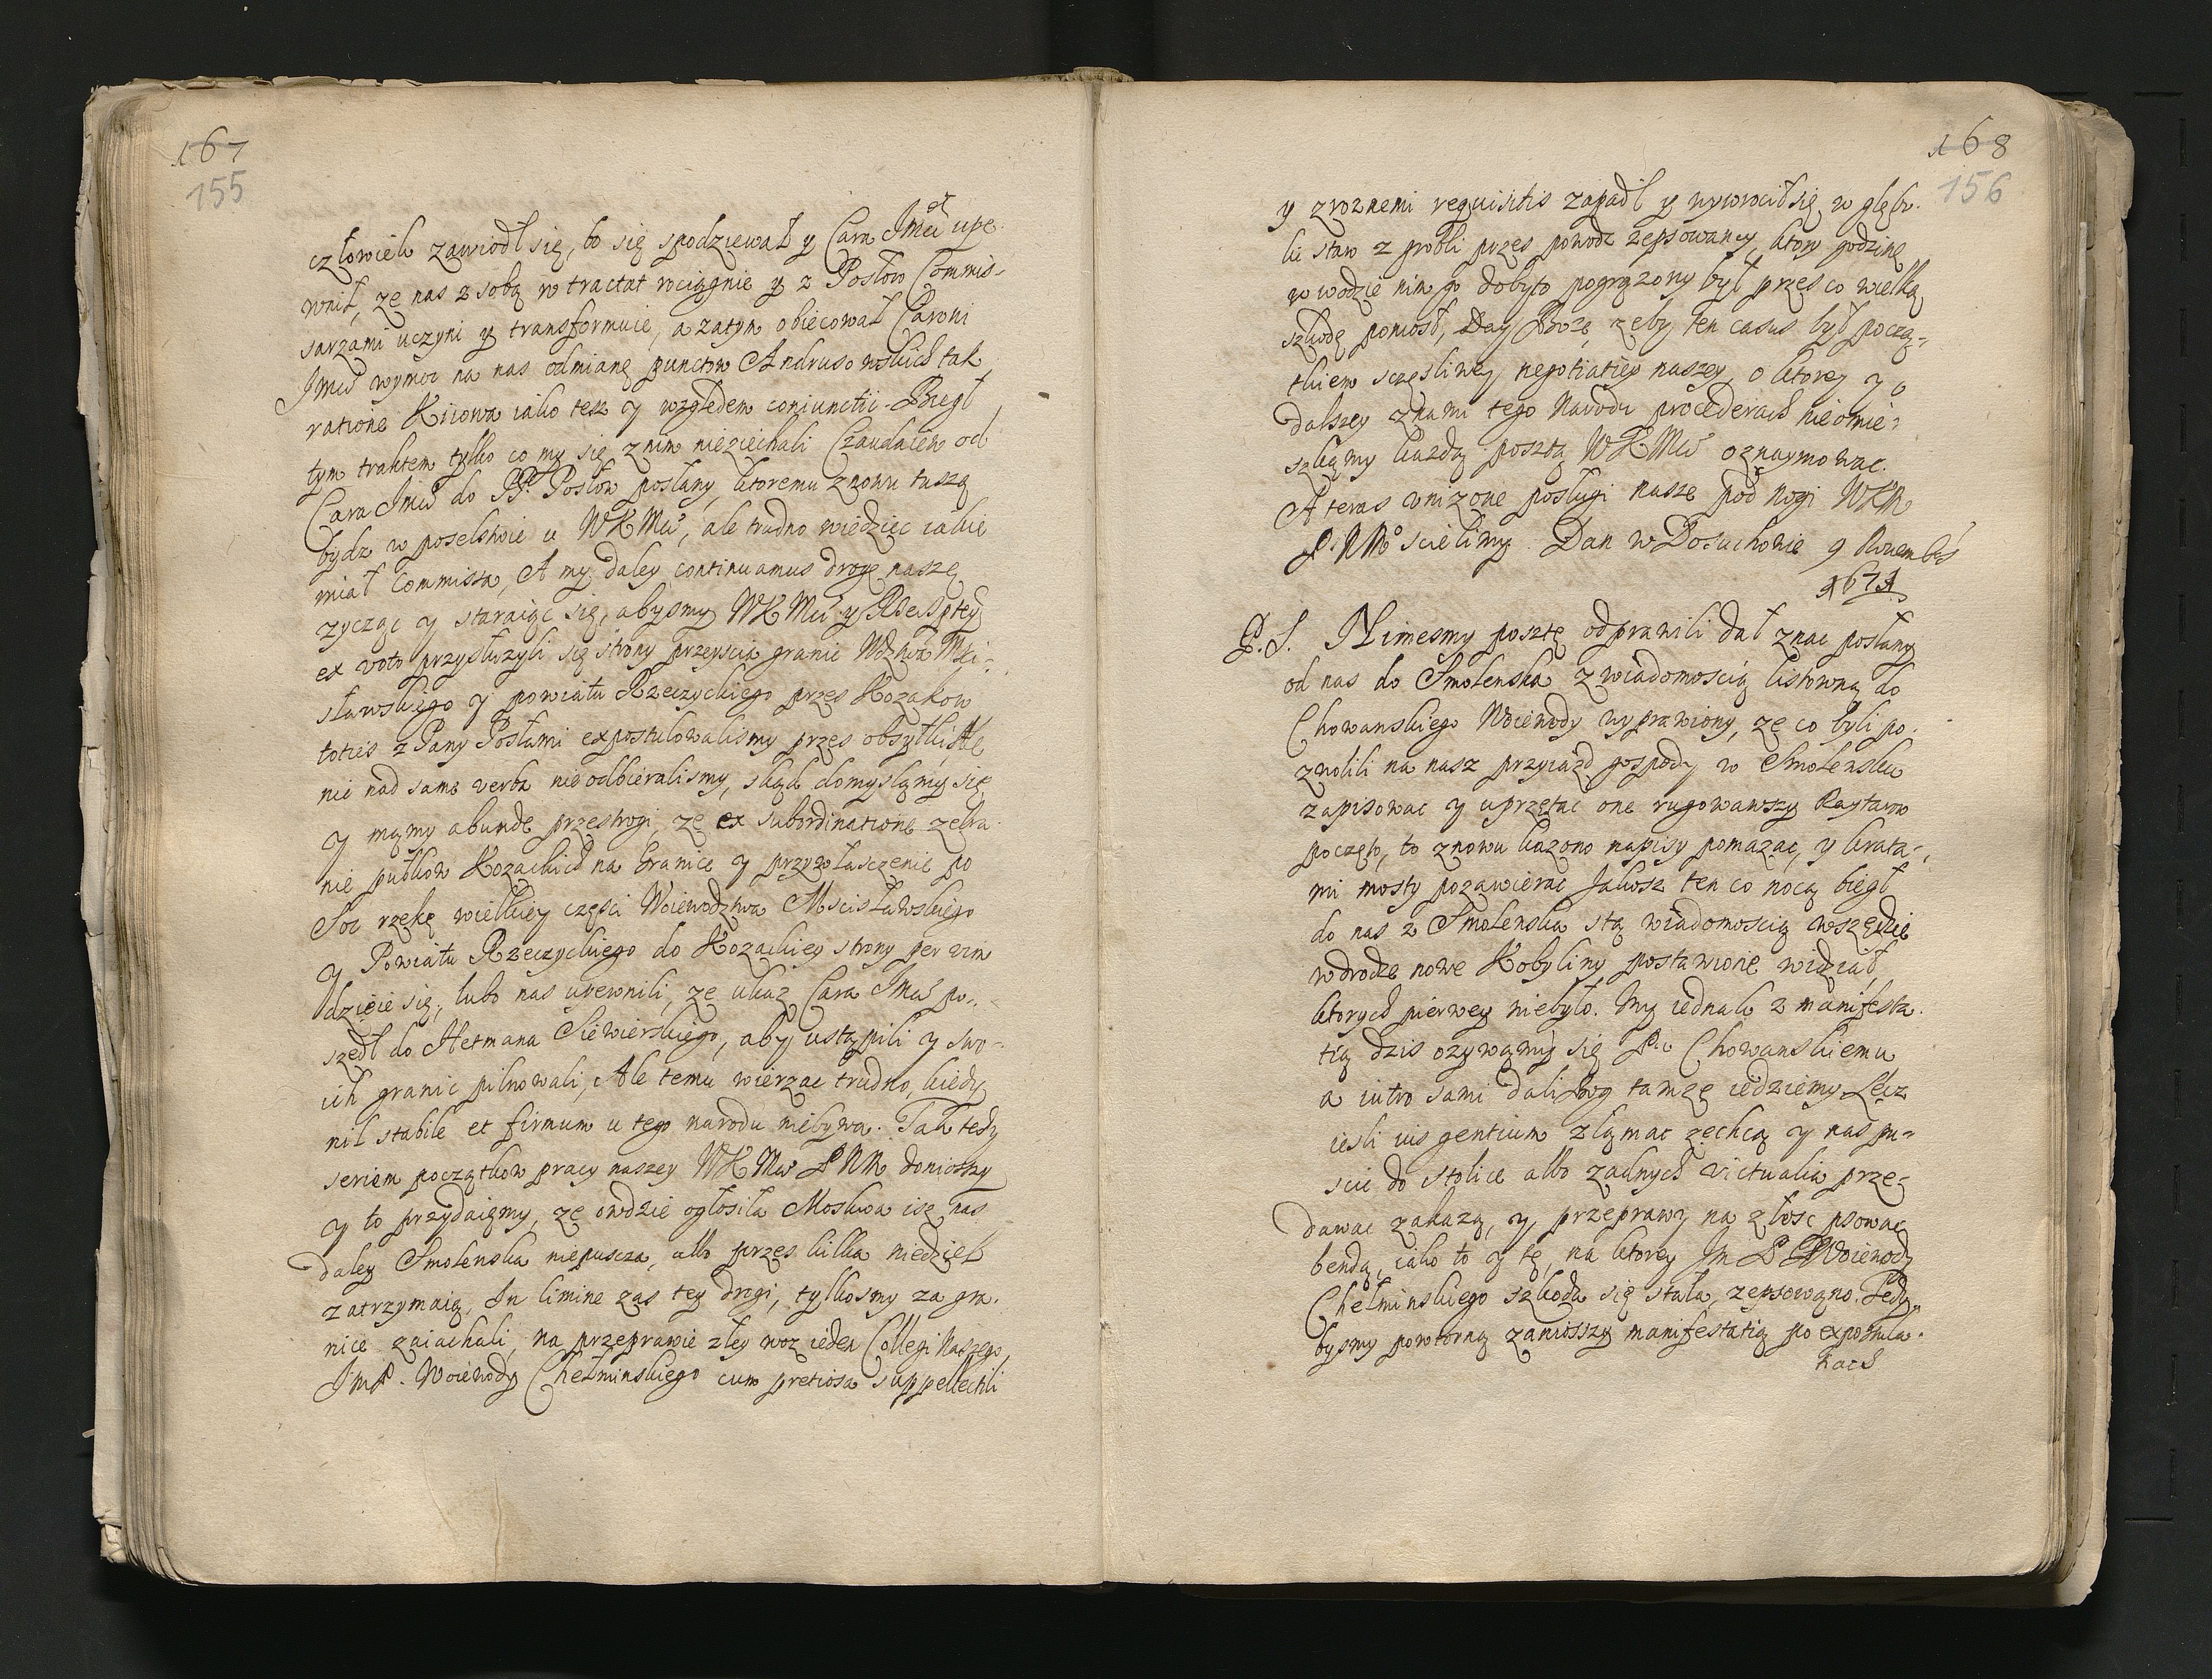 167
155
człowiek zawiodł się, bo się spodziewał y Cara Jmci upe-
wnił, ze nas z sobą w tractat wciągnie y z Posłow Commis-
sarzami uczyni y transformuie, a zatym obiecował Carowi
Jmci wymoc na nas odmianę punctow Andrusowskich tak
ratione Kiiowa iako tesz y względem coniunctii. Biegł
tym traktem tylko co my się z nim nieziechali Czaudaiew od
Cara Jmci do PP. Posłow posłany, ktoremu znowu tuszą
bydz w poselstwie u WKMci, ale trudno wiedziec iakie
miał Commissa, A my daley continuamus drogę naszę
zycząc y staraiąc się, abysmy WKMci y Rzeczptey
ex voto przysłuzyli się strony przeyscia granic Wdztwa Mści-
sławskiego y powiatu Rzeczyckiego przes Kozakow
toties z Pany Posłami expostulowalismy przes obsyłki, Ale
nic nad same verba nieodbieralismy, skąd domyslamy się
y mamy abunde przestrogi, ze ex subordinatione zebra-
nie pułkow Kozackich na Granice y przywłasczenie po
Soz rzekę wielkiey częsci Woiewodztwa Mscisławskiego
y Powiatu Rzeczyckiego do Kozackiey strony per vim
dzieie się, lubo nas upewnili, ze ukaz Cara Jmci po-
szedł do Hetmana Siewierskiego, aby ustąpili y swo-
ich granic pilnowali, Ale temu wierzac trudno, kiedy
nil stabile et firmum u tego narodu niebywa. Tak tedy
seriem początkow pracy naszey WKMci PNM donioszszy
y to przydaięmy, ze owdzie ogłosiła Moskwa isz nas
daley Smolenska niepuscza, albo przes kilka niedziel
zatrzymaią, In limine zas tey drogi, tylkosmy za gra-
nice zaiachali, na przeprawie złey woz ieden Collegi Naszego
JmP. Woiewody Chełminskiego cum pretiosa suppellectili
168
156
y z roznemi requisitis zapadł y wywrocił się w głębo-
ki staw z grobli przes powodz zepsowaney, ktory godzinę
w wodzie nim go dobyto pogrązony był przes co wielką
szkodę poniosł, Day Boze, zeby ten casus był począ-
tkiem scęsliwey negotiatiey naszey, o ktorey y o
dalszey z nami tego Narodu procederach nieomie-
szkamy kazdą posztą WKMci oznaymowac.
A teras vnizone posługi nasze pod nogi WKM
P.NMo scielimy. Dan w Dosuchowie 9 Nouembris
1671
P.S. Nimesmy posztę odprawili dał znac posłany
od nas do Smolenska z wiadomoscią listowną do
Chowanskiego Woiewody wyprawiony, ze co byli po-
zwolili na nasz przyiazd gospody w Smolensku
zapisowac y uprzętac one rugowawszy Raytarow
poczęto, to znowu kazono napisy pomazac, y krata-
mi mosty pozawierac Jakosz ten co nocą biegł
do nas z Smolenska stą wiadomoscią wszędzie
wdrodze nowe Kobyliny postawione widział,
ktorych pierwey niebyło. My iednak z manifesta-
tią dzis ozywamy się Pu Chowanskiemu
a iutro sami dali Bog tamze iedziemy Lecz
iesli ius gentium złamac zechcą y nas pu-
scic do stolice albo zadnych victualia prze-
dawac zakazą, y przeprawy na złosc psowac
bendą, iako to y tę, na ktorey Jm P Woiewody
Chełminskiego szkoda się stała, zepsowano. Tedy-
bysmy powtorną zaniosszy manifestatią po expostula-
tiach